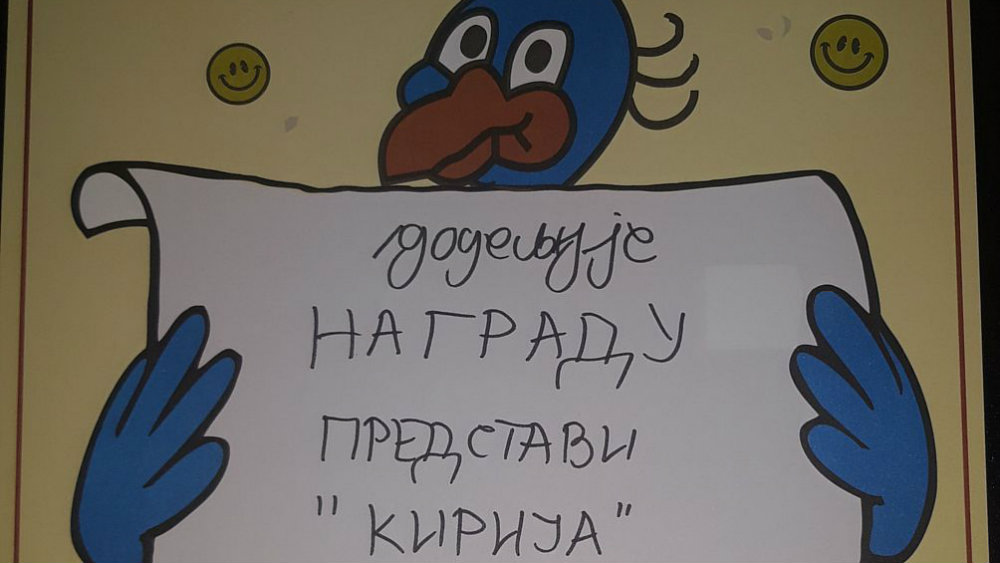 додељује
НАГРАДУ
ПРЕДСТАВИ
"КИРИЈА"